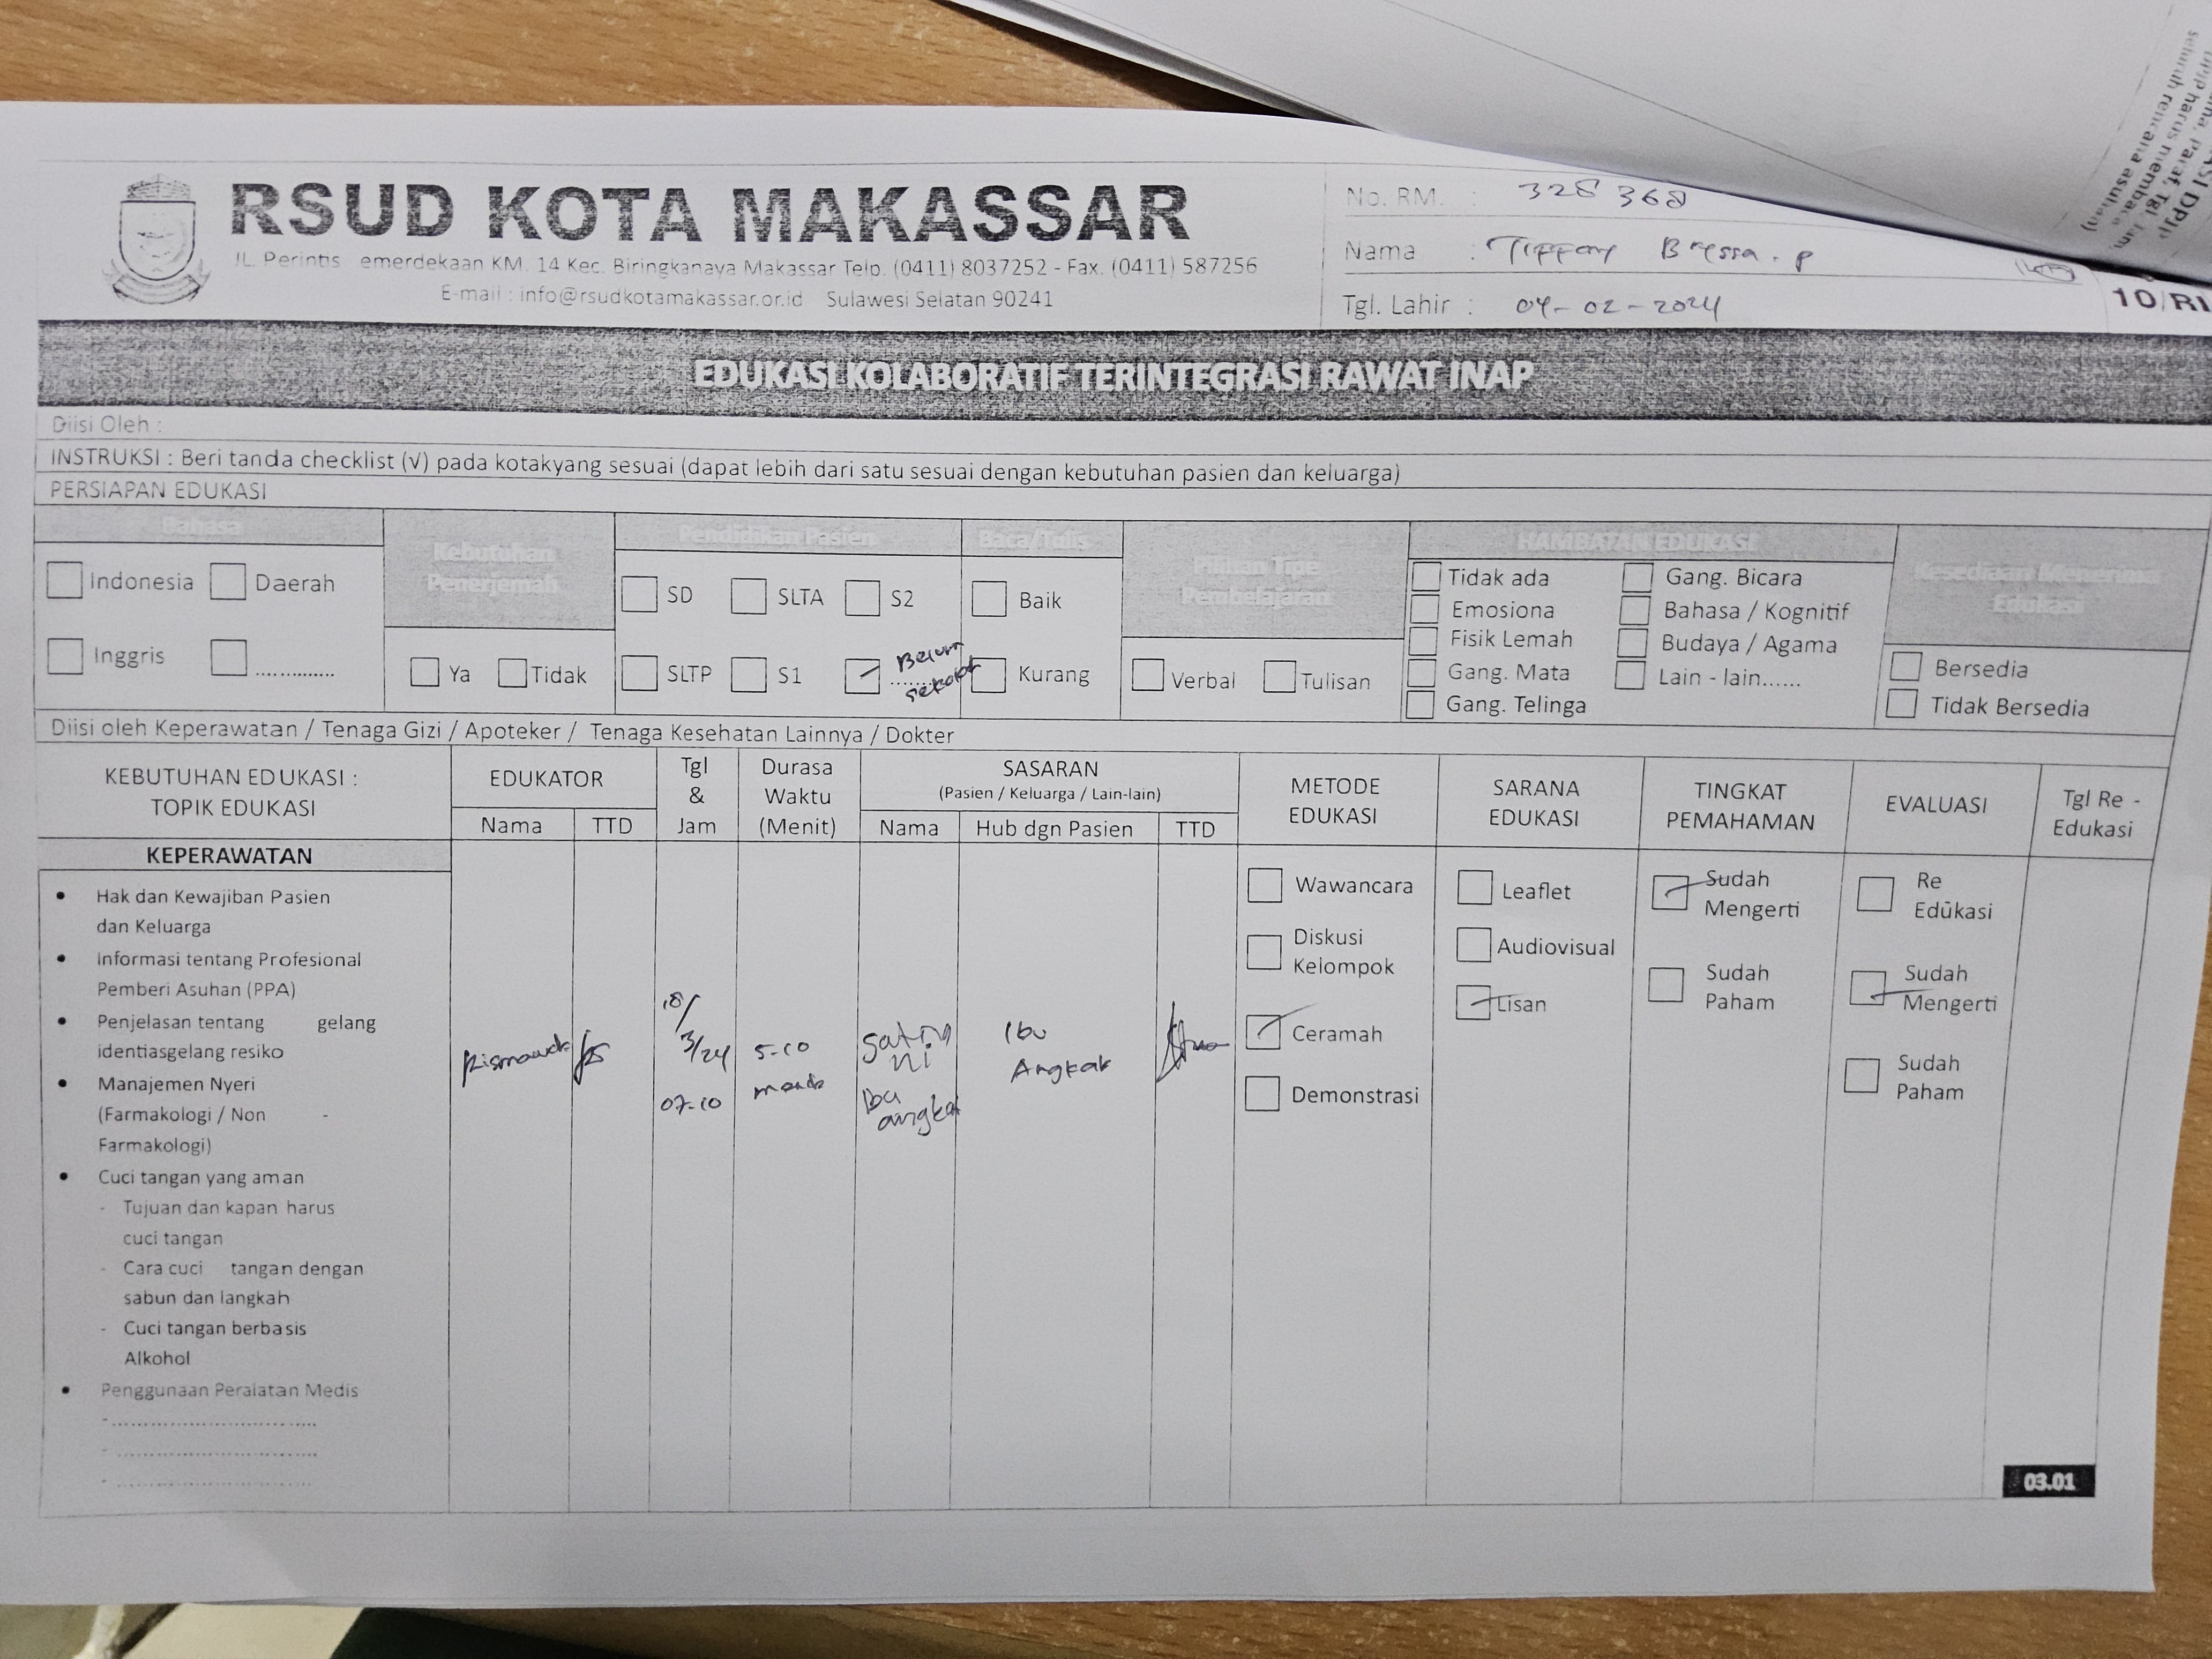 RSUD KOTA MAKASSAR
JL. Perintis emerdekaan KM. 14 Kec. Biringkanaya Makassar Telp. (0411) 8037252 - Fax. (0411) 587256
E-mail : info@rsudkotamakassar.or.id Sulawesi Selatan 90241
No. RM. : 328 368
Nama :
Tgl. Lahir : 04-02-2024
10/RI
EDUKASI KOLABORATIF TERINTEGRASI RAWAT INAP
Diisi Oleh :
INSTRUKSI : Beri tanda checklist (√) pada kotakyang sesuai (dapat lebih dari satu sesuai dengan kebutuhan pasien dan keluarga)
PERSIAPAN EDUKASI
Bahasa
Indonesia Daerah
Inggris ..............
Kebutuhan
Penerjemah
Ya Tidak
Pendidikan Pasien
SD SLTA S2
SLTP S1 Belum
sekolah
Baca/Tulis
Baik
Kurang
Pilihan Tipe
Pembelajaran
Verbal Tulisan
HAMBATAN EDUKASI
Tidak ada Gang. Bicara
Emosiona Bahasa / Kognitif
Fisik Lemah Budaya / Agama
Gang. Mata Lain - lain......
Gang. Telinga
Kesediaan Menerima
Edukasi
Bersedia
Tidak Bersedia
Diisi oleh Keperawatan / Tenaga Gizi / Apoteker / Tenaga Kesehatan Lainnya / Dokter
KEBUTUHAN EDUKASI :
TOPIK EDUKASI
EDUKATOR
Nama TTD
Tgl
&
Jam
Durasa
Waktu
(Menit)
SASARAN
(Pasien / Keluarga / Lain-lain)
Nama Hub dgn Pasien TTD
METODE
EDUKASI
SARANA
EDUKASI
TINGKAT
PEMAHAMAN
EVALUASI
Tgl Re -
Edukasi
KEPERAWATAN
• Hak dan Kewajiban Pasien
dan Keluarga
• Informasi tentang Profesional
Pemberi Asuhan (PPA)
• Penjelasan tentang gelang
identiasgelang resiko
• Manajemen Nyeri
(Farmakologi / Non -
Farmakologi)
• Cuci tangan yang aman
- Tujuan dan kapan harus
cuci tangan
- Cara cuci tangan dengan
sabun dan langkah
- Cuci tangan berbasis
Alkohol
• Penggunaan Peralatan Medis
- ..................................
- ..................................
- ..................................
18/
3/24
07-10
5-10
Ibu
angkat
Ibu
Angkat
Wawancara
Diskusi
Kelompok
Ceramah
Demonstrasi
Leaflet
Audiovisual
Lisan
Sudah
Mengerti
Sudah
Paham
Re
Edukasi
Sudah
Mengerti
Sudah
Paham
03.01